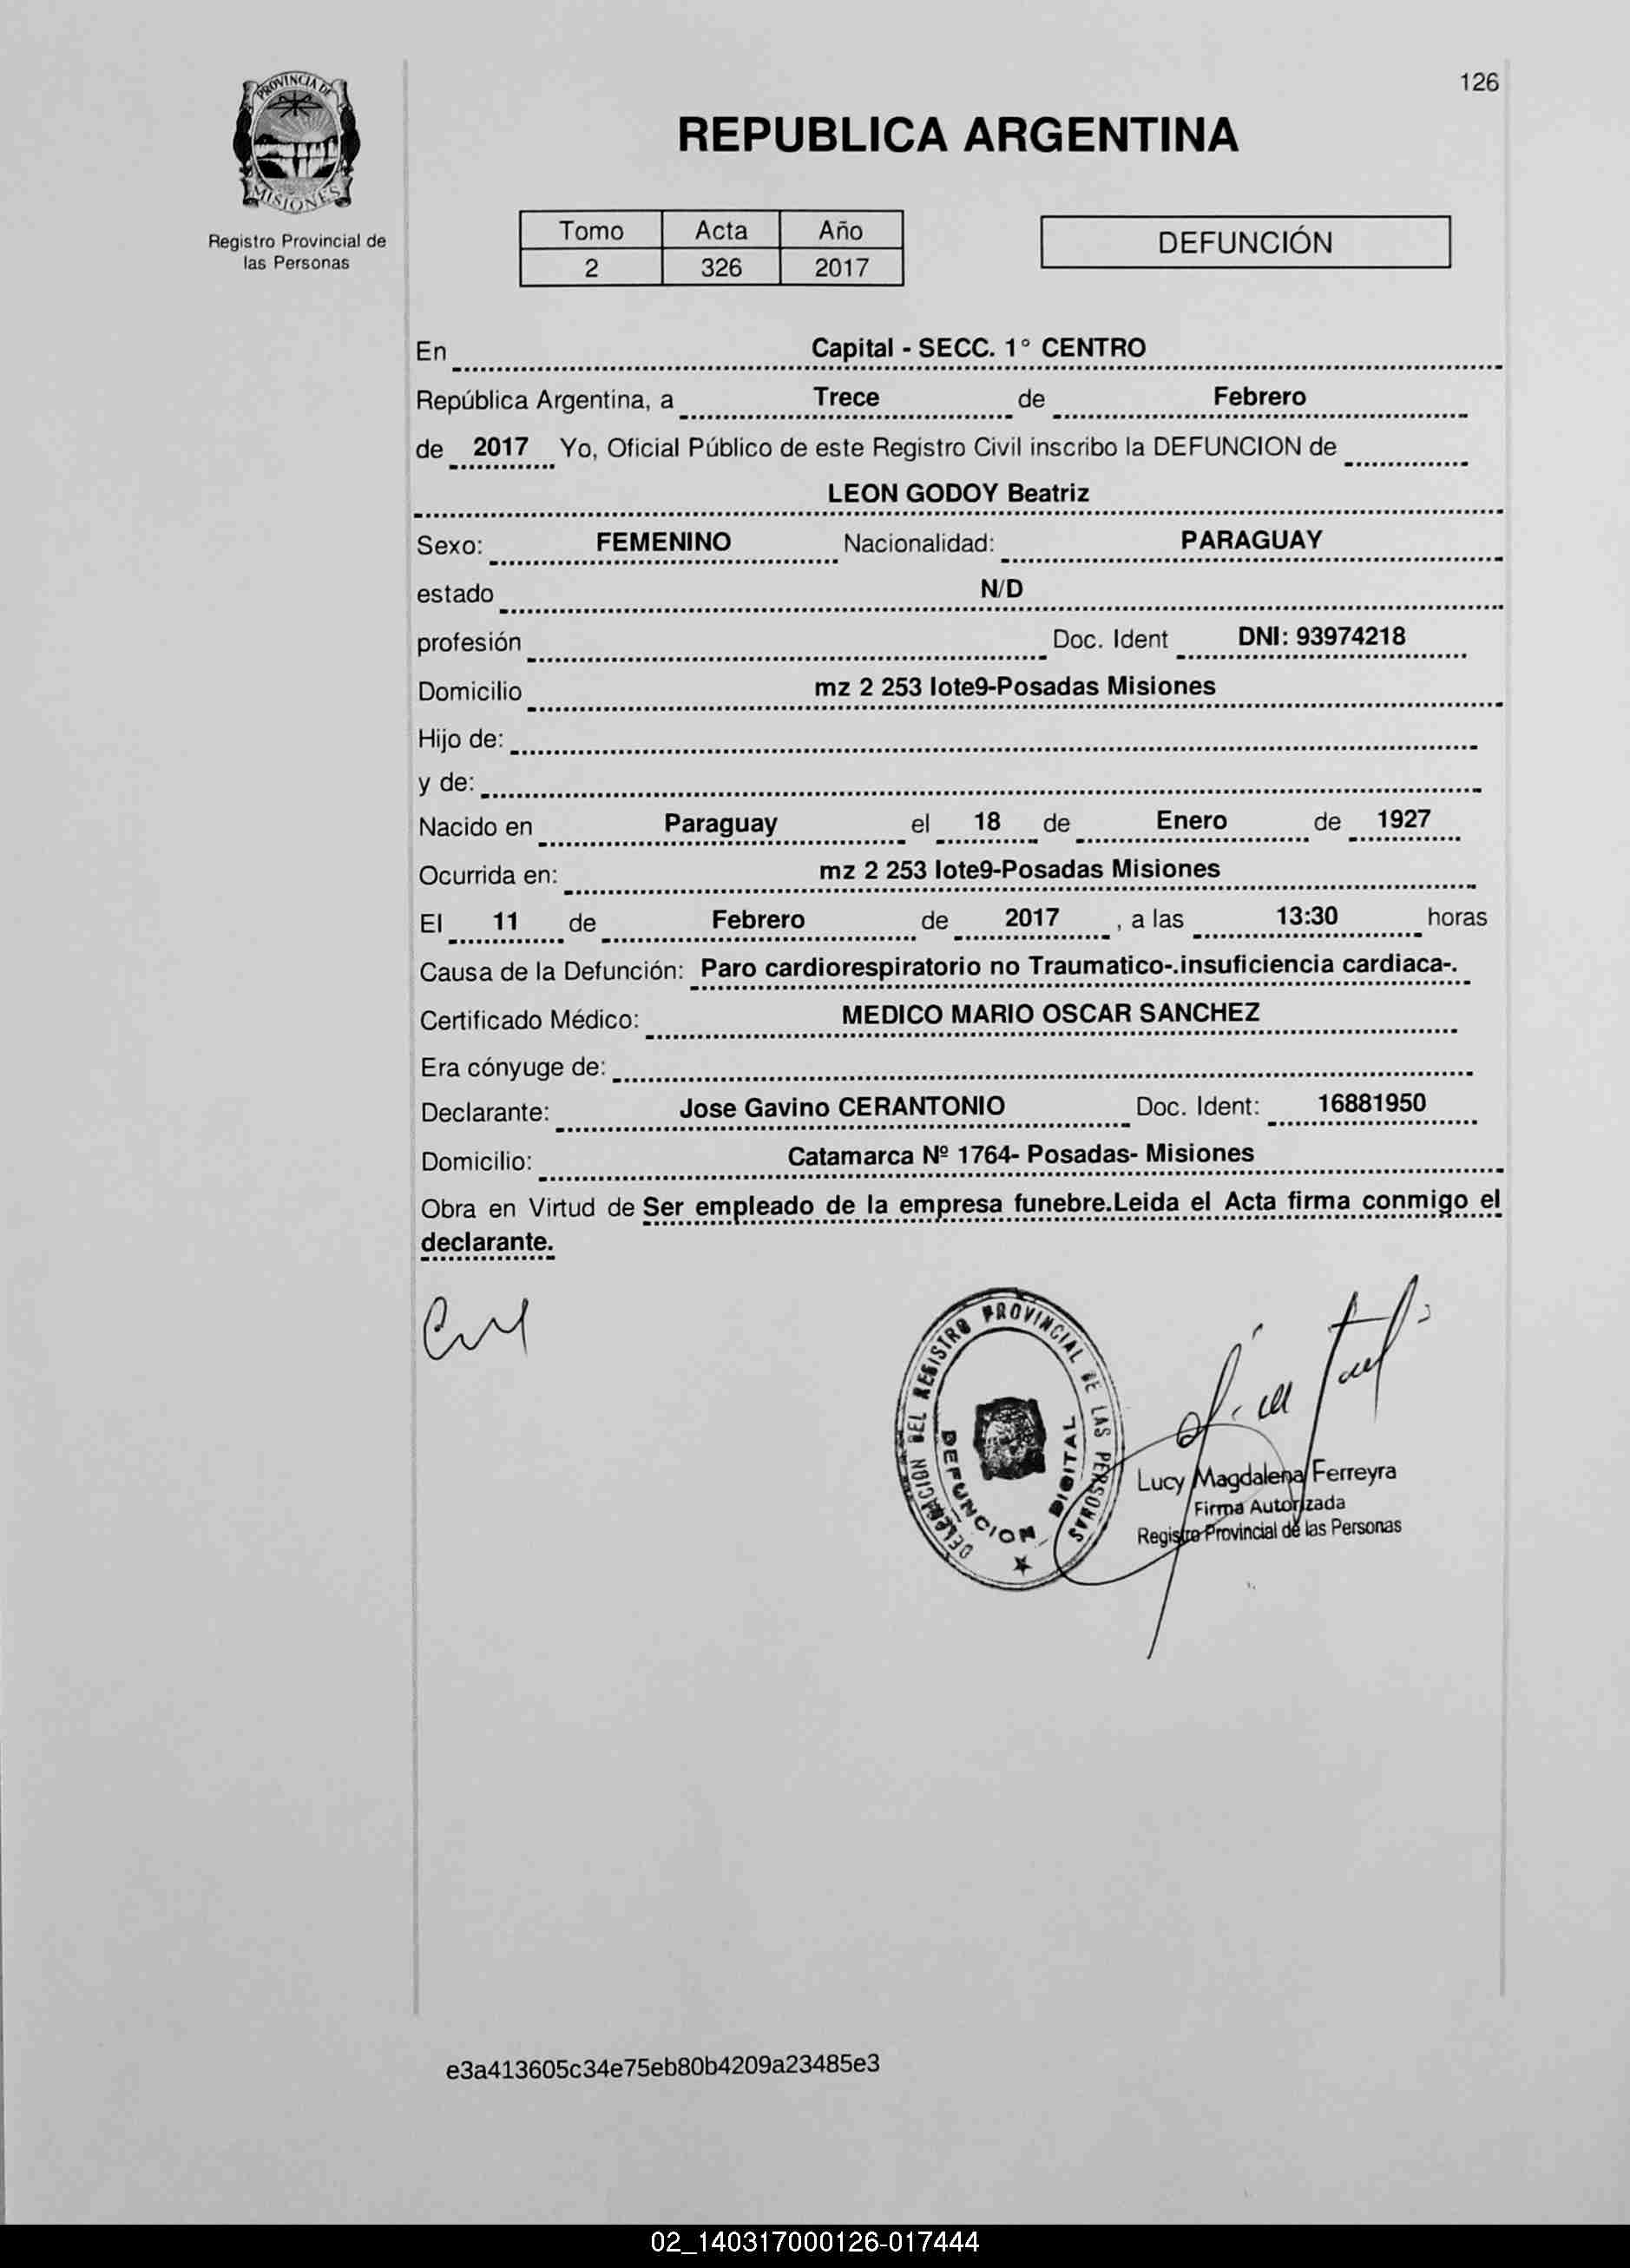 126
PROVINCIA DE
MISIONES
Registro Provincial de
las Personas
REPUBLICA ARGENTINA
Tomo Acta Año
2 326 2017
DEFUNCIÓN
En Capital - SECC. 1° CENTRO
República Argentina, a Trece de Febrero
de 2017 Yo, Oficial Público de este Registro Civil inscribo la DEFUNCION de
LEON GODOY Beatriz
Sexo: FEMENINO Nacionalidad: PARAGUAY
estado N/D
profesión Doc. Ident DNI: 93974218
Domicilio mz 2 253 lote9-Posadas Misiones
Hijo de:
y de:
Nacido en Paraguay el 18 de Enero de 1927
Ocurrida en: mz 2 253 lote9-Posadas Misiones
El 11 de Febrero de 2017 , a las 13:30 horas
Causa de la Defunción: Paro cardiorespiratorio no Traumatico-.insuficiencia cardiaca-.
Certificado Médico: MEDICO MARIO OSCAR SANCHEZ
Era cónyuge de:
Declarante: Jose Gavino CERANTONIO Doc. Ident: 16881950
Domicilio: Catamarca Nº 1764- Posadas- Misiones
Obra en Virtud de Ser empleado de la empresa funebre.Leida el Acta firma conmigo el
declarante.
DELEGACION DEL REGISTRO PROVINCIAL DE LAS PERSONAS
DEFUNCION DIGITAL
Lucy Magdalena Ferreyra
Firma Autorizada
Registro Provincial de las Personas
e3a413605c34e75eb80b4209a23485e3
02_140317000126-017444